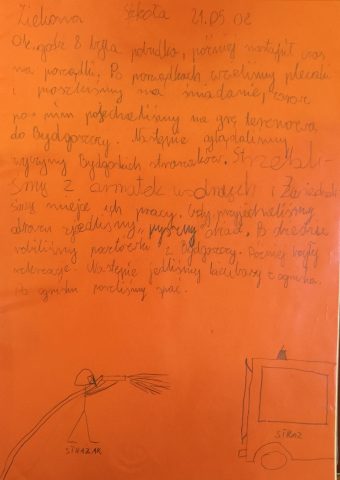 Zielona Szkoła 21.05.02
Ok. godz 8 była pobudka, później nastąpił czas
na porządki. Po porządkach wzieliśmy plecaki
i poszliśmy na śniadanie, zaraz
po nim pojechaliśmy na grę terenową
do Bydgoszczy. Następnie oglądaliśmy
wyczyny Bydgoskich strażaków. Strzelali-
śmy z armatek wodnych i
miejsce ich pracy. Gdy przyjechaliśmy
zjedliśmy pyszny obiad. Po obiedzie
robiliśmy pocztówki z Bydgoszczy. Później były
rekreacje. Następnie jedliśmy kiełbasy z ogniska.
Po ognisku poszliśmy spać.
STRAŻAK
STRAŻ